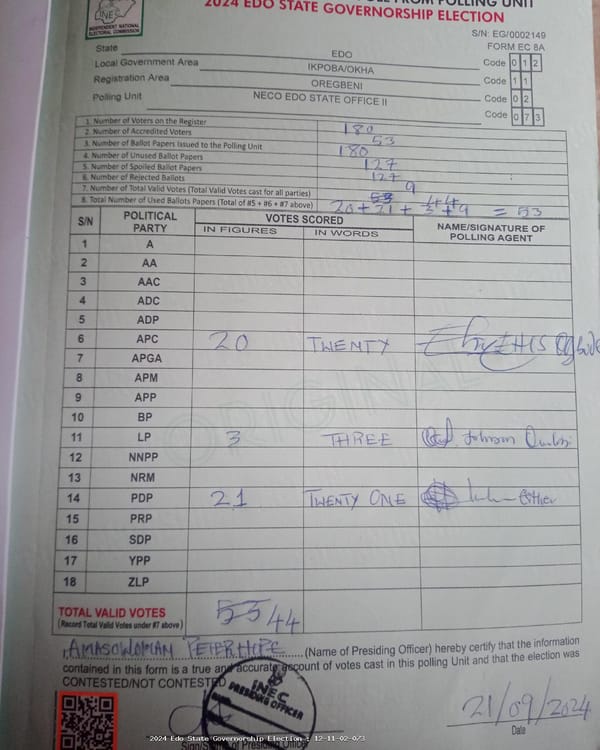 INEC
INDEPENDENT NATIONAL
ELECTORAL COMMISSION
FROM POLLING UNIT
2024 EDO STATE GOVERNORSHIP ELECTION
S/N: EG/0002149
FORM EC 8A
State EDO
Local Government Area IKPOBA/OKHA Code 0 1 2
Registration Area OREGBENI Code 1 1
Polling Unit NECO EDO STATE OFFICE II Code 0 2
Code 0 7 3
1. Number of Voters on the Register 180
2. Number of Accredited Voters 53
3. Number of Ballot Papers Issued to the Polling Unit 180
4. Number of Unused Ballot Papers 127
5. Number of Spoiled Ballot Papers 127
6. Number of Rejected Ballots 9
7. Number of Total Valid Votes (Total Valid Votes cast for all parties) 53 44
8. Total Number of Used Ballots Papers (Total of #5 + #6 + #7 above) 20 + 21 + 3 + 9 = 53
S/N POLITICAL PARTY VOTES SCORED NAME/SIGNATURE OF POLLING AGENT
IN FIGURES IN WORDS
1 A
2 AA
3 AAC
4 ADC
5 ADP
6 APC 20 TWENTY
7 APGA
8 APM
9 APP
10 BP
11 LP 3 THREE Johnson
12 NNPP
13 NRM
14 PDP 21 TWENTY ONE Esther
15 PRP
16 SDP
17 YPP
18 ZLP
ORIGINAL
TOTAL VALID VOTES 53 44
(Record Total Valid Votes under #7 above)
I, AMASOWOMAN PETER HOPE (Name of Presiding Officer) hereby certify that the information
contained in this form is a true and accurate account of votes cast in this polling Unit and that the election was
CONTESTED/NOT CONTESTED
INEC
PRESIDING OFFICER
21/09/2024
Date
Sign/Stamp of Presiding Officer
2024 Edo State Governorship Election : 12-11-02-073